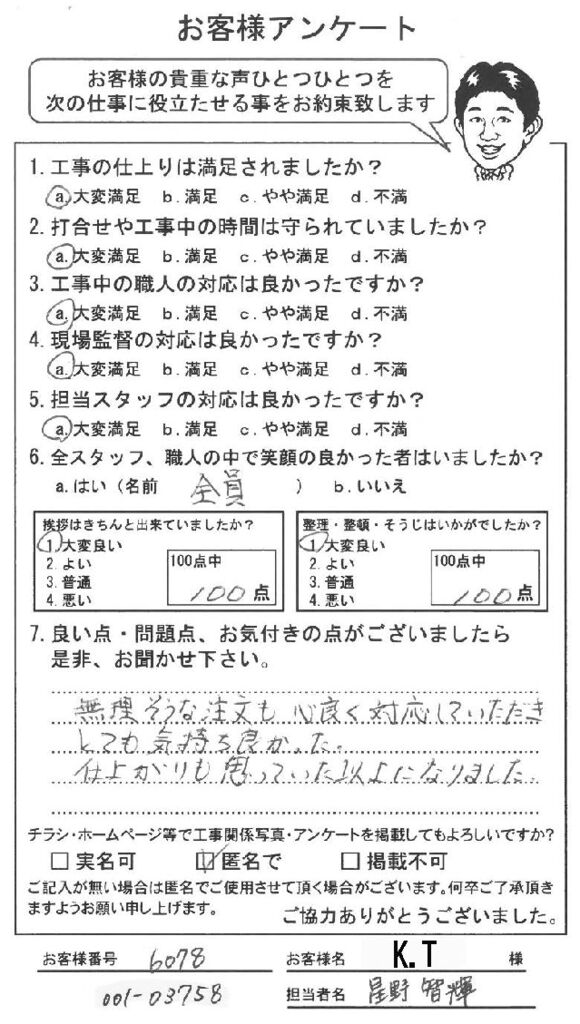 お客様アンケート
お客様の貴重な声ひとつひとつを
次の仕事に役立たせる事をお約束致します
1.工事の仕上りは満足されましたか？
a.大変満足 b.満足 c.やや満足 d.不満
2.打合せや工事中の時間は守られていましたか？
a.大変満足 b.満足 c.やや満足 d.不満
3.工事中の職人の対応は良かったですか？
a.大変満足 b.満足 c.やや満足 d.不満
4.現場監督の対応は良かったですか？
a.大変満足 b.満足 c.やや満足 d.不満
5.担当スタッフの対応は良かったですか？
a.大変満足 b.満足 c.やや満足 d.不満
6.全スタッフ、職人の中で笑顔の良かった者はいましたか？
a.はい（名前 全員 ） b.いいえ
挨拶はきちんと出来ていましたか？
1.大変良い
2.よい
3.普通
4.悪い
100点中
100点
整理・整頓・そうじはいかがでしたか？
1.大変良い
2.よい
3.普通
4.悪い
100点中
100点
7.良い点・問題点、お気付きの点がございましたら
是非、お聞かせ下さい。
無理そうな注文も心良く対応していただき
とても気持ち良かった。
仕上がりも思っていた以上になりました。
チラシ・ホームページ等で工事関係写真・アンケートを掲載してもよろしいですか？
□実名可 ☑匿名で □掲載不可
ご記入が無い場合は匿名でご使用させて頂く場合がございます。何卒ご了承頂き
ますようお願い申し上げます。
ご協力ありがとうございました。
お客様番号 6078
お客様名 K.T 様
001-03758
担当者名 星野 智輝